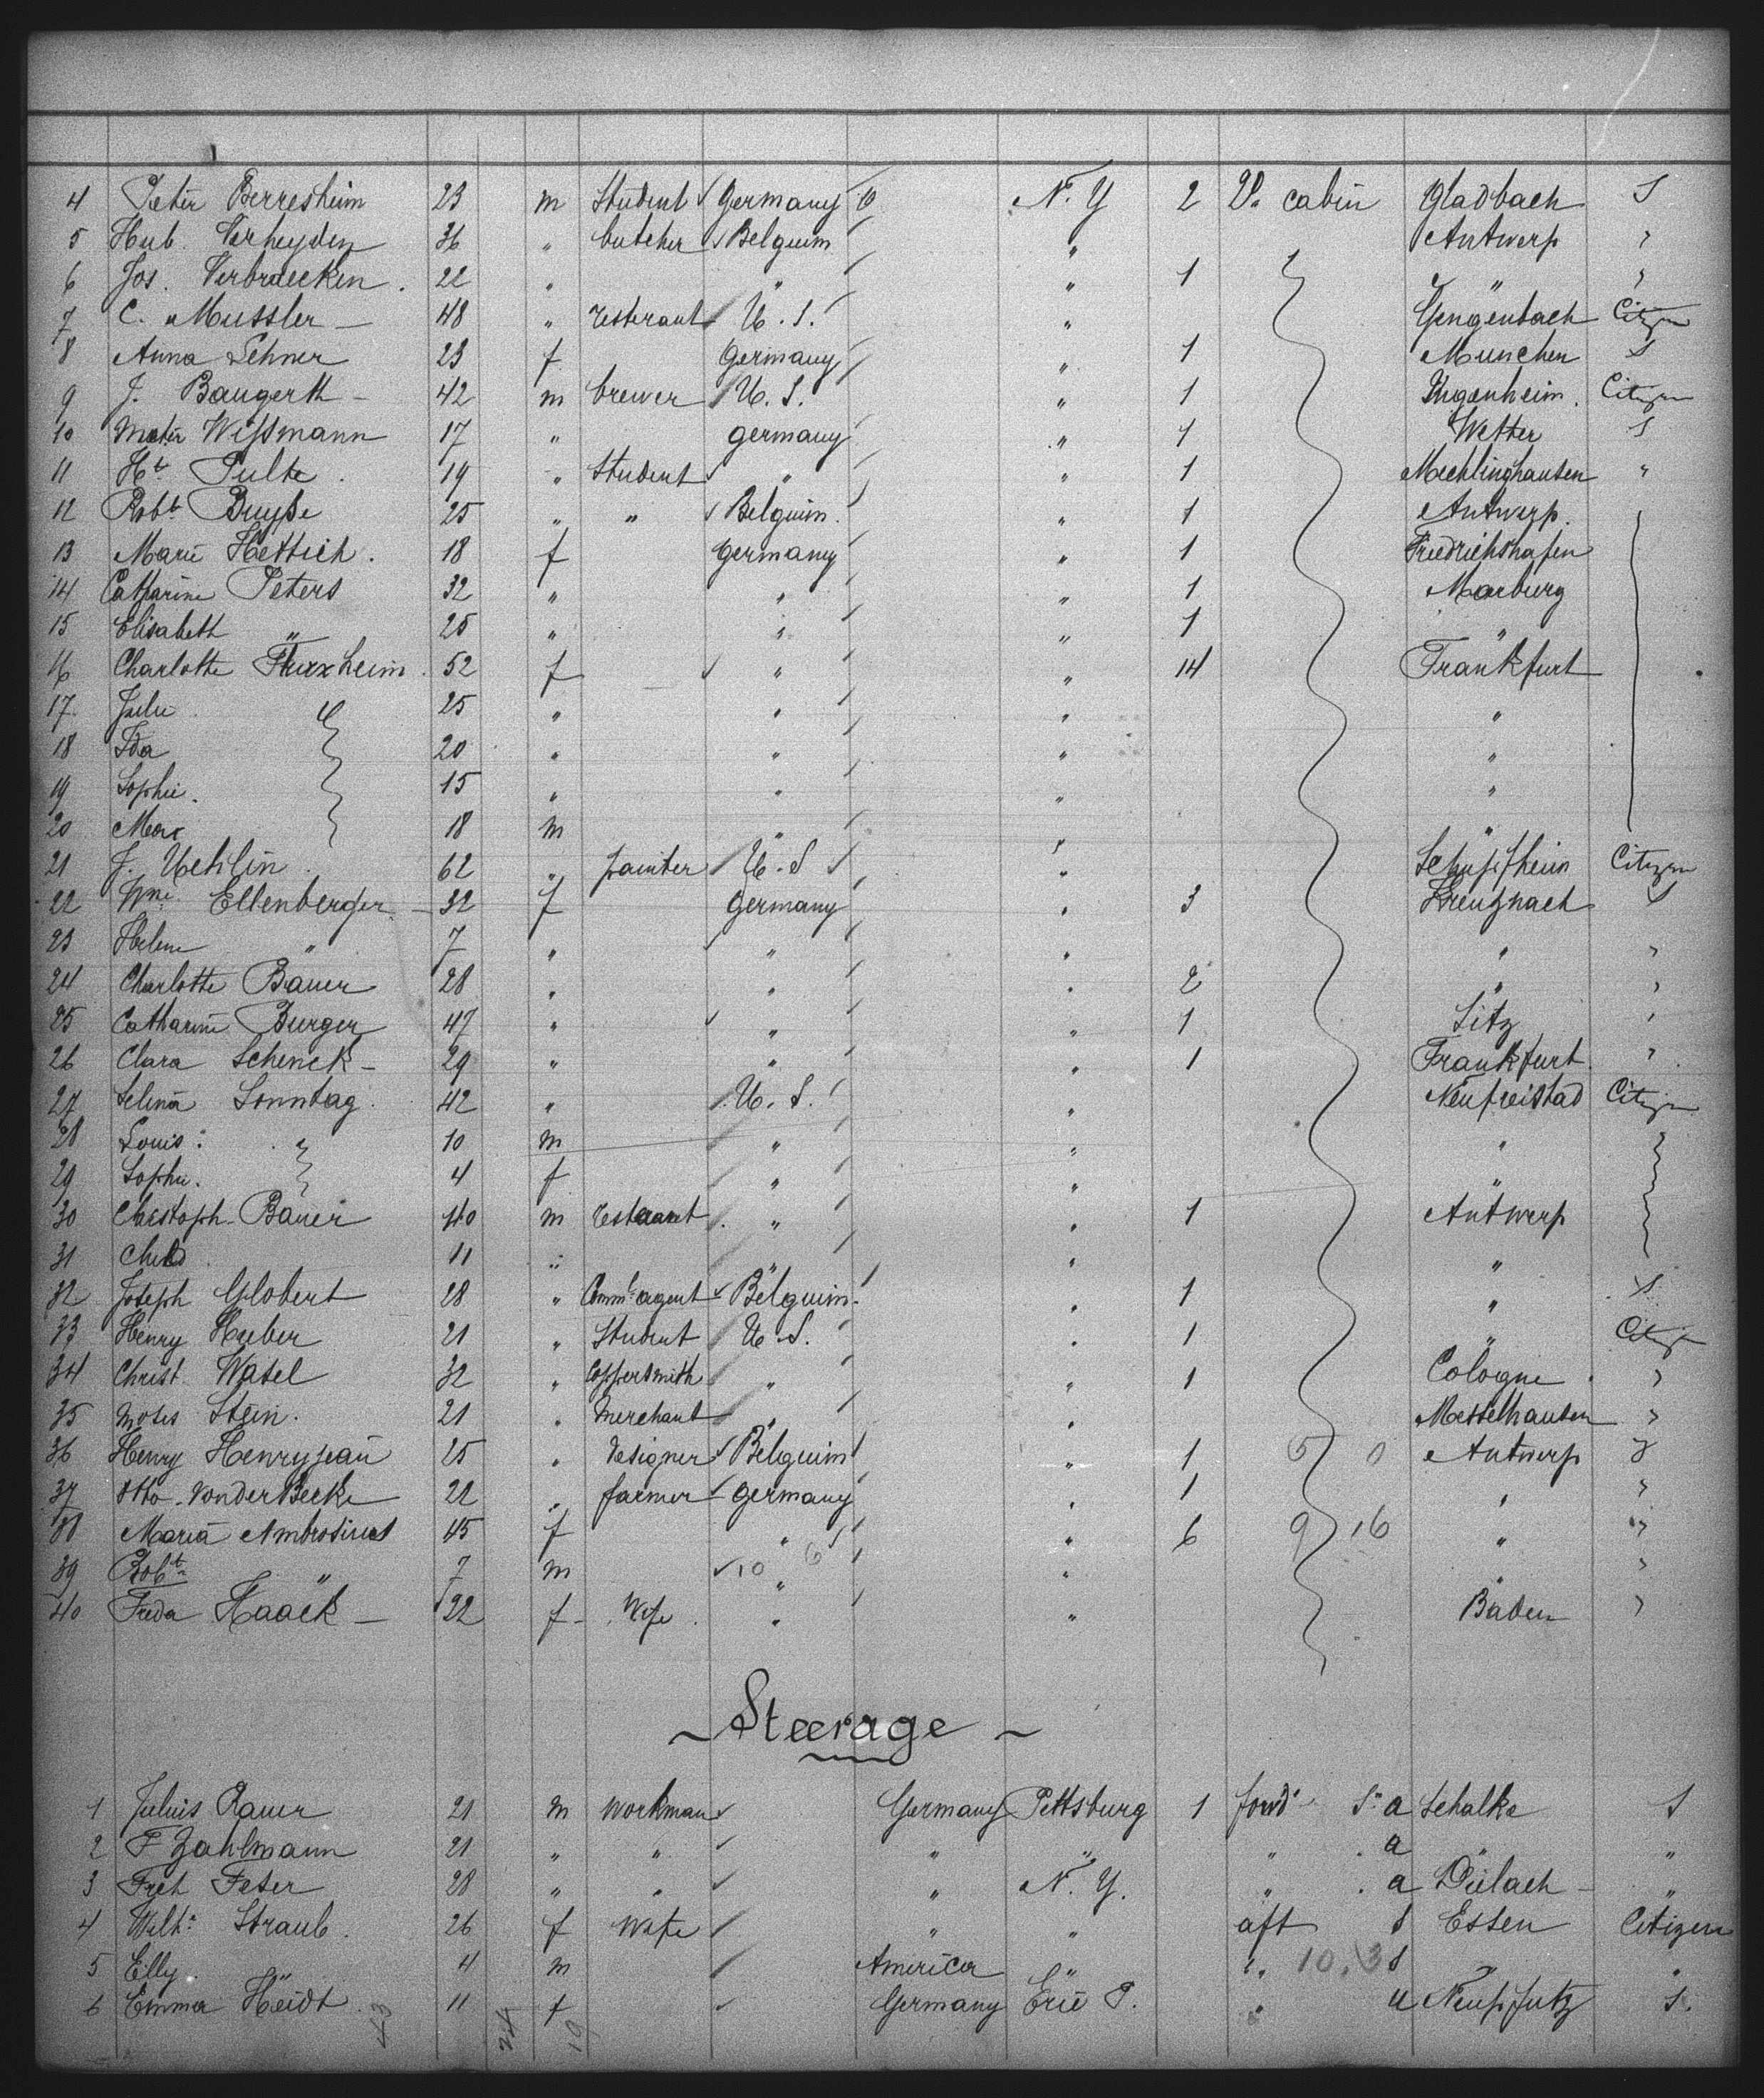 4 Peter Berresheim 23 m Student Germany N. Y 2 2. cabin Gladbach S
5 Hub. Verheyden 36 " butcher Belguim " Antwerp "
6 Jos. Verbraecken 22 " " " 1 " "
7 C. Mussler 48 " resteraut U. S. " Gengenbach Citizen
8 Anna Lehner 23 f Germany " 1 Munchen S
9 J. Baugerth 42 m brewer U. S. " 1 Citizen
10 Wissmann 17 " germany " 1 Wetter S
11 Ht. Pulte 19 " Student " " 1 Mechlinghausen "
12 Robt. Buyße 25 " " Belguim " 1 Antwerp
13 Marie Hettich 18 f Germany " 1 Friedrichshafen
14 Catharine Peters 32 " " " 1 Marburg
15 Elisabeth " 25 " " " 1 "
16 Charlotte 52 f " " 14 Frankfurt
17 Julie 25 " " " "
18 Ida 20 " " " "
19 Sophie 15 " " " "
20 Max 18 m " " "
21 J. Uehlin 62 " painter U. S " Citizen
22 Wne. Ellenberger 32 f Germany " 3 Kreuznach S
23 Helene " 7 " " " " "
24 Charlotte Bauer 28 " " " 2 " "
25 Catharine Burger 47 " " " 1 Sitz "
26 Clara Schenck 29 " " " 1 Frankfurt "
27 Selina Sonntag 42 " U. S. " Neufreistad Citizen
28 Louis 10 m " " "
29 Sophie 4 f " " "
30 Christoph Bauer 40 m " " 1 Antwerp
31 Child 11 " " " "
32 Joseph Globert 28 " Comml. agent Belguim " 1 " S
33 Henry Huber 21 " Student U. S. " 1 " Citizen
34 Christ. Watel 32 " Coppersmith " " 1 Cologne "
35 Moses Stein 21 " Merchant " " Messelhausen "
36 Henry Henryjean 25 " designer Belguim " 1 5 0 Antwerp S
37 Otto VonderBecke 22 " farmer Germany " 1 " "
38 Maria Ambrosius 45 f " " 6 9 16 " "
39 Robt. " 7 m 10 6 " " "
40 Freda Haack 22 f Wife " " Baden "
Steerage
1 Julius Rauer 21 m workman Germany Pettsburg 1 forwd. S. a Schalke S
2 F Zahlmann 21 " " " " " a " "
3 Feter 28 " " " N. Y. " a "
4 Wilh. Straub 26 f Wife " " aft S Essen Citizen
5 Elly 4 m America " " 10. 3 S " "
6 Emma Heidt 11 f Germany Erie P. " u S.